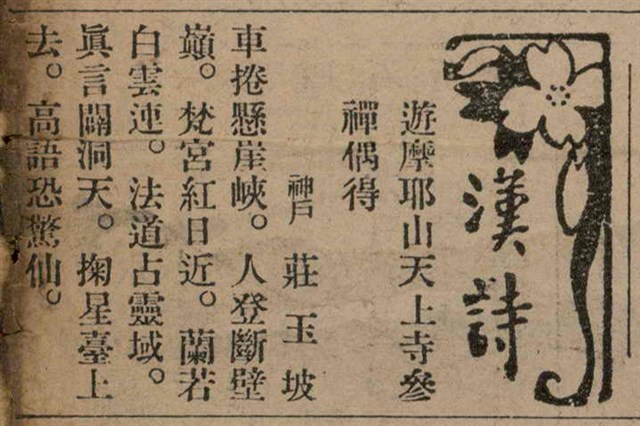 漢詩
遊摩耶山天上寺參
禪偶得
神戶 莊玉坡
車捲懸崖峽。人登斷壁
巔。梵宮紅日近。蘭若
白雲連。法道占靈域。
眞言闢洞天。掬星臺上
去。高語恐驚仙。